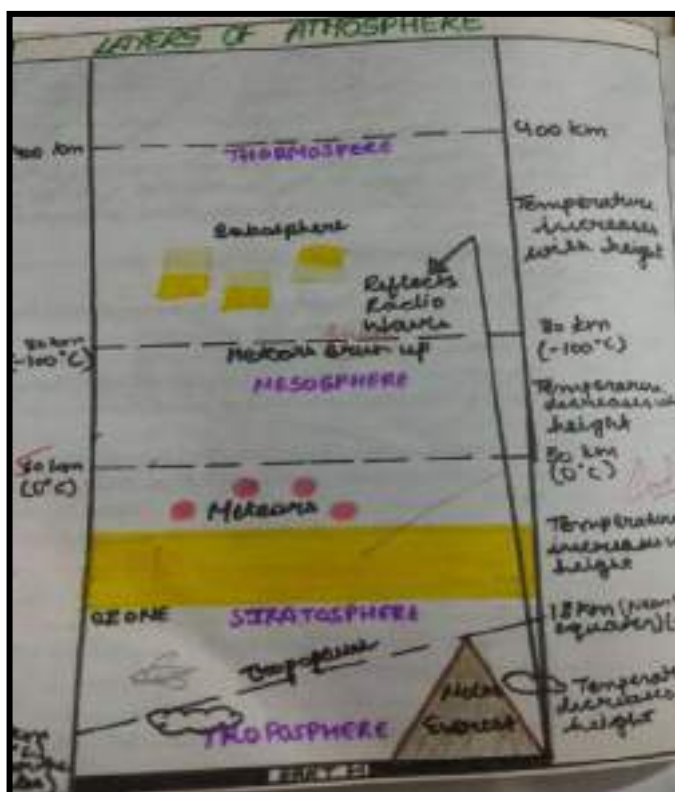 LAYERS OF ATHOSPHERE
400 km
400 km
THORMOSPERE
Temperature
increases
with height
Reflects
Radio
Waves
80 km
(-100°C)
80 km
(-100°C)
Meteors brun up
MESOSPHERE
Temperature
decreases
height
50 km
(0°C)
50 km
(0°C)
Meteors
Temperature
increases
height
OZONE
STRATOSPHERE
18 km (Near
equater)
Tropopause
Mount
Everest
Temperat
decreases
height
TROPOSPHERE